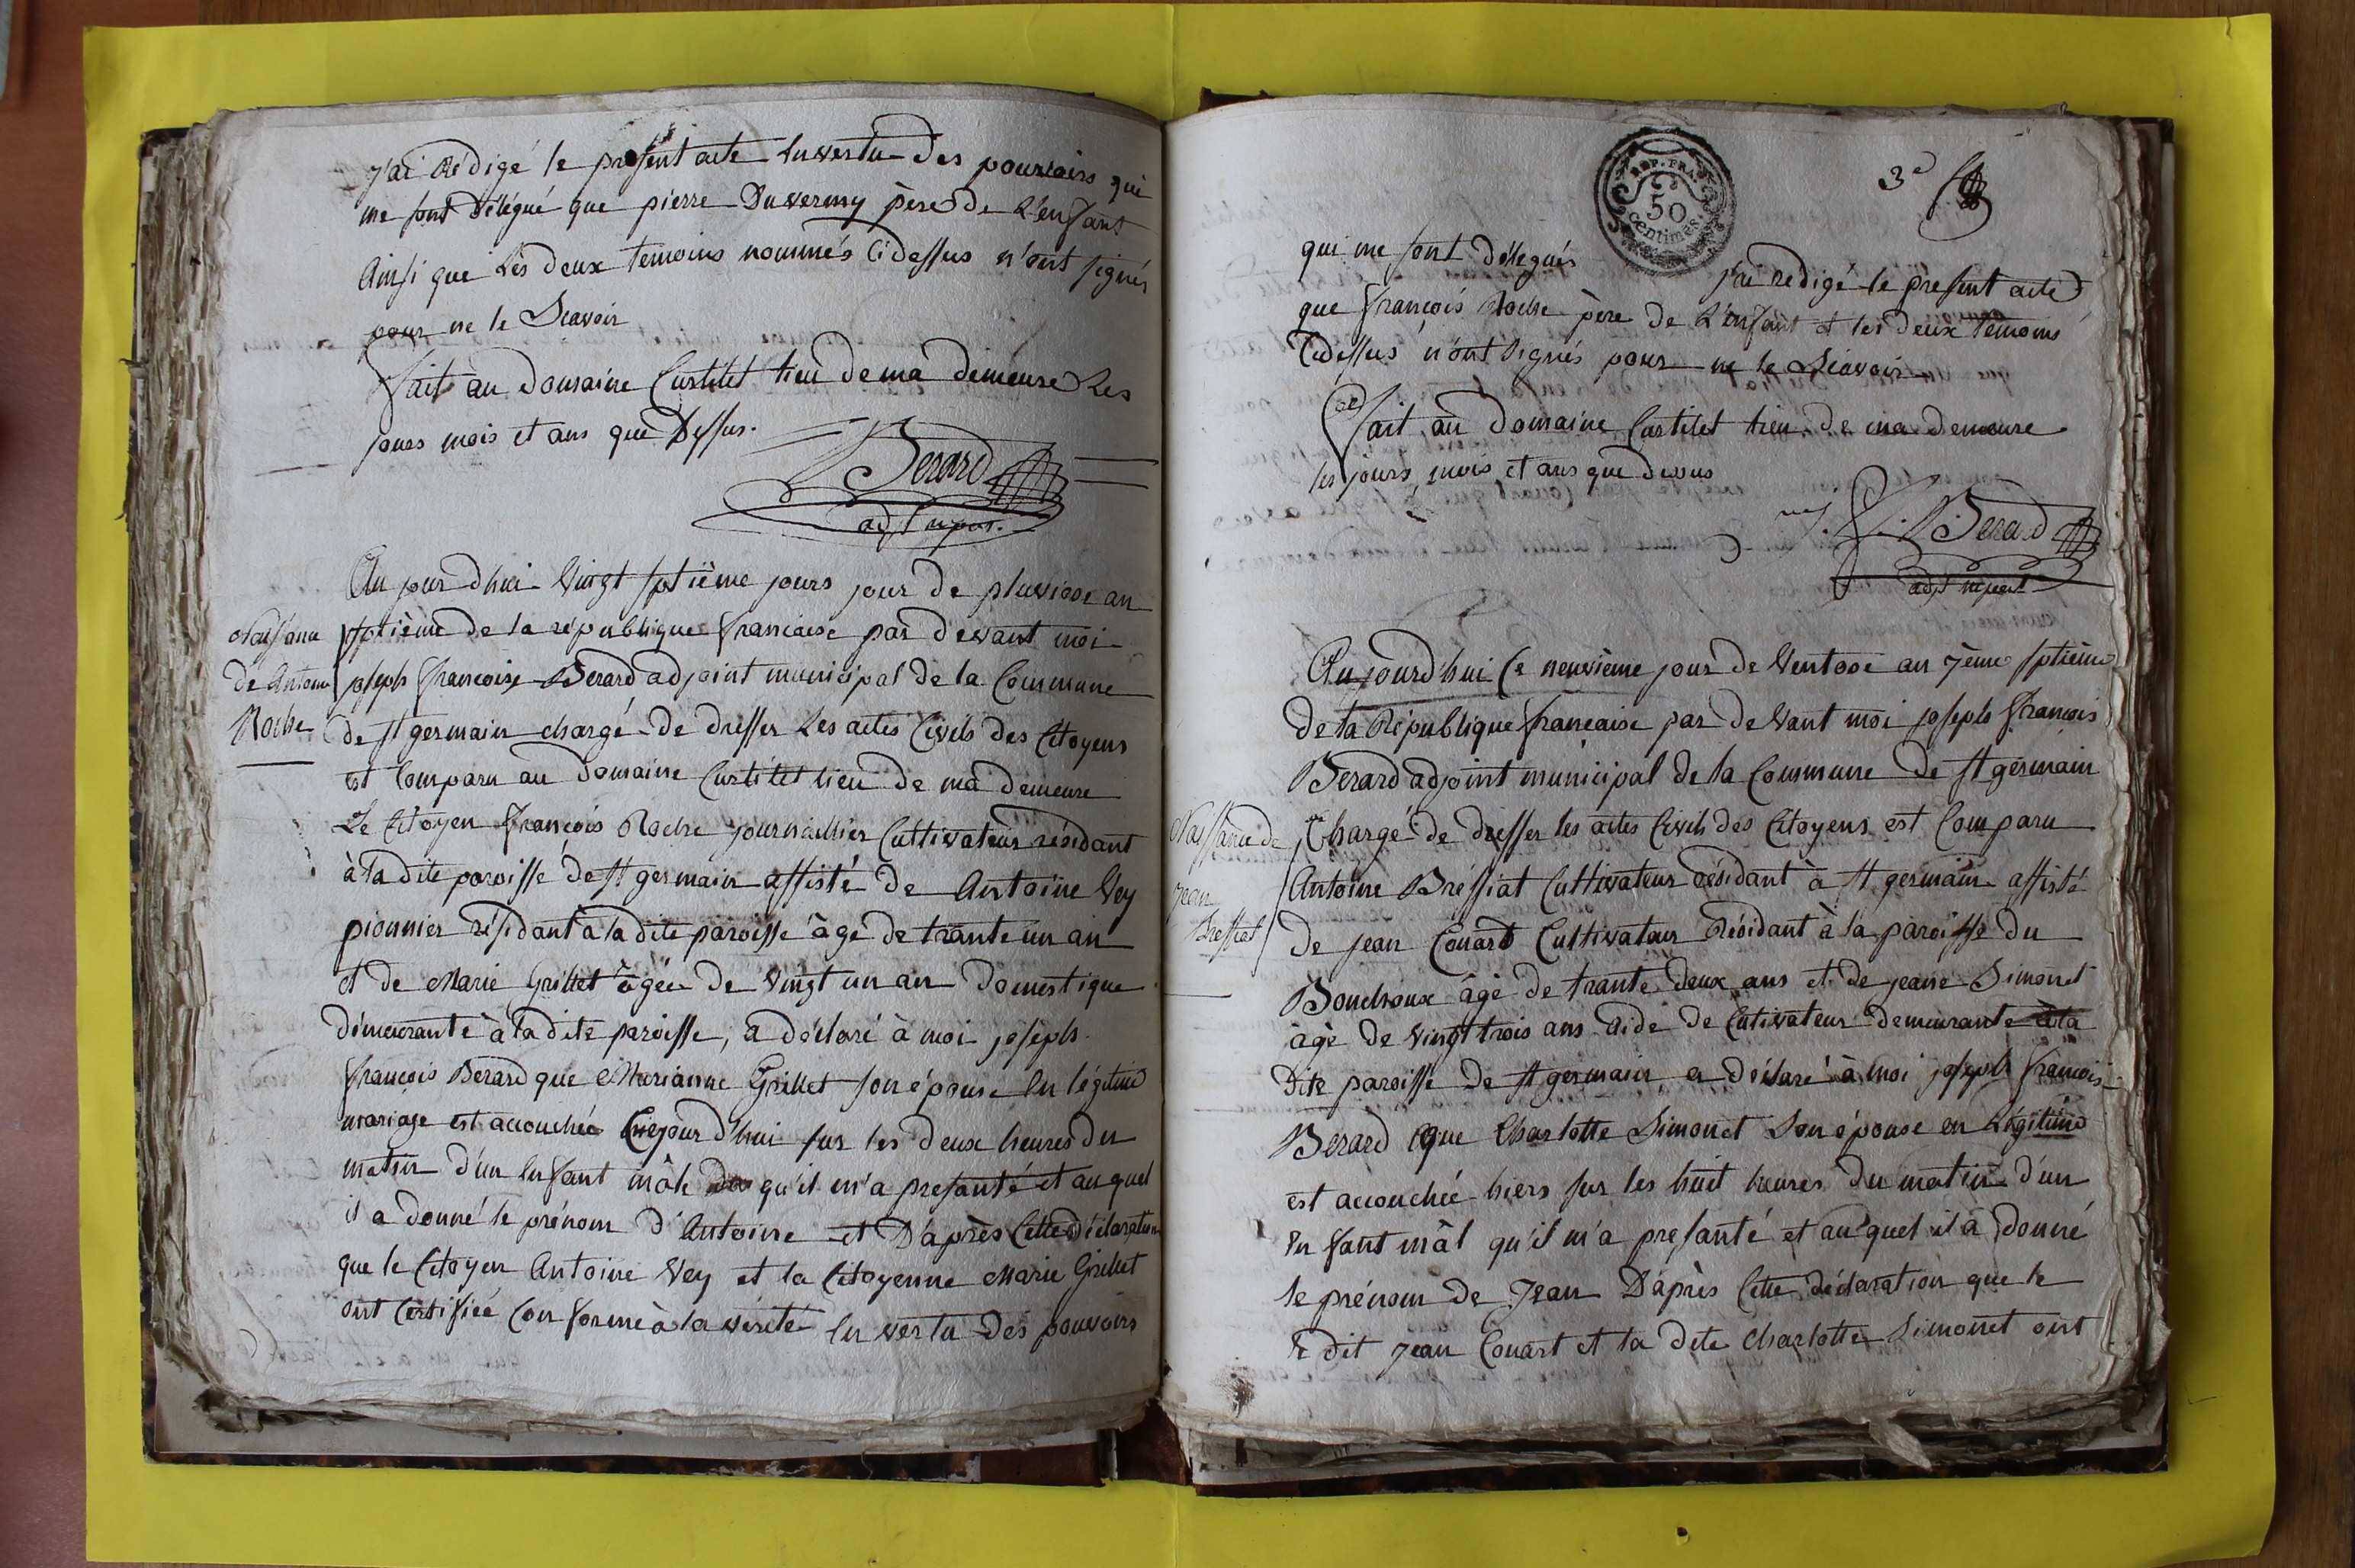 j'ai Rédigé le present acte En vertu Des pouvoirs qui
me sont Délégué que pierre Duvernay père de L'enfant
Ainsi que Les deux temoins nommés Cidessus n'ont signés
pour ne le Scavoir
Fait au Domaine Curtilet lieu de ma demeure Les
jours mois et ans que Dessus.
Berard
adjt
Au jourd'hui Vingt septième jours jour de pluviose an
septième de la république francaise par devant moi
joseph francoise Berard adjoint municipal de la Commune
de st germain chargé De dresser Les actes Civils des Citoyens
est Comparu au Domaine Curtilet lieu de ma demeure
Le Citoyen François Roche journaillier Cultivateur résidant
à la dite paroisse de st germain assisté de Antoine Vey
pionnier résidant à la dite paroisse âgé de trante un an
et de Marie Grillet âgée de Vingt un an Domestique
démeurante à la dite paroisse, a déclaré à moi joseph
francois Berard que Marianne Grillet son épouse En légitime
mariage est accouchée Cejourd'hui sur les deux heures du
matin d'un Enfant mâle qu'il m'a presanté et auquel
il a donné le prénom d'Antoine et D'après Cette Déclaration
que le Citoyen Antoine Vey et la Citoyenne Marie Grillet
ont Certifiée Conforme à la vérité En vertu Des pouvoirs
Naissance
de Antoine
Roche
REP. FRA.
50
centimes
3e
qui me sont délegués j'ai redigé le present acte
que François Roche père de L'enfant et les deux témoins
Cidessus n'ont signés pour ne le Scavoir
Fait au Domaine Curtilet lieu de ma demeure
les jours mois et ans que dessus
Berard
adjt
Aujourd'hui Ce neuvième jour de Ventose an 7ème septième
de la République francaise par devant moi joseph François
Berard adjoint municipal de la Commune de st germain
Chargé de dresser les actes Civils des Citoyens est Comparu
Antoine Bressiat Cultivateur résidant à st germain assisté
de jean Couart Cultivateur Résidant à la paroisse du
Bouchoux âgé de trante deux ans et de jeane Simonet
âgé de vingt trois ans aide de Cutivateur demeurante à la
Dite paroisse de st germain a déclaré à moi joseph francois
Berard que Charlotte Simonet Son épouse en Légitime
est accouchée hiers sur les huit heures du matin d'un
Enfant mâl qu'il m'a presanté et auquel il à donné
le prénom de Jean D'aprés Cette déclaration que le
le dit Jean Couart et la dite Charlotte Simonnet ont
Naissance de
Jean
Bressiat